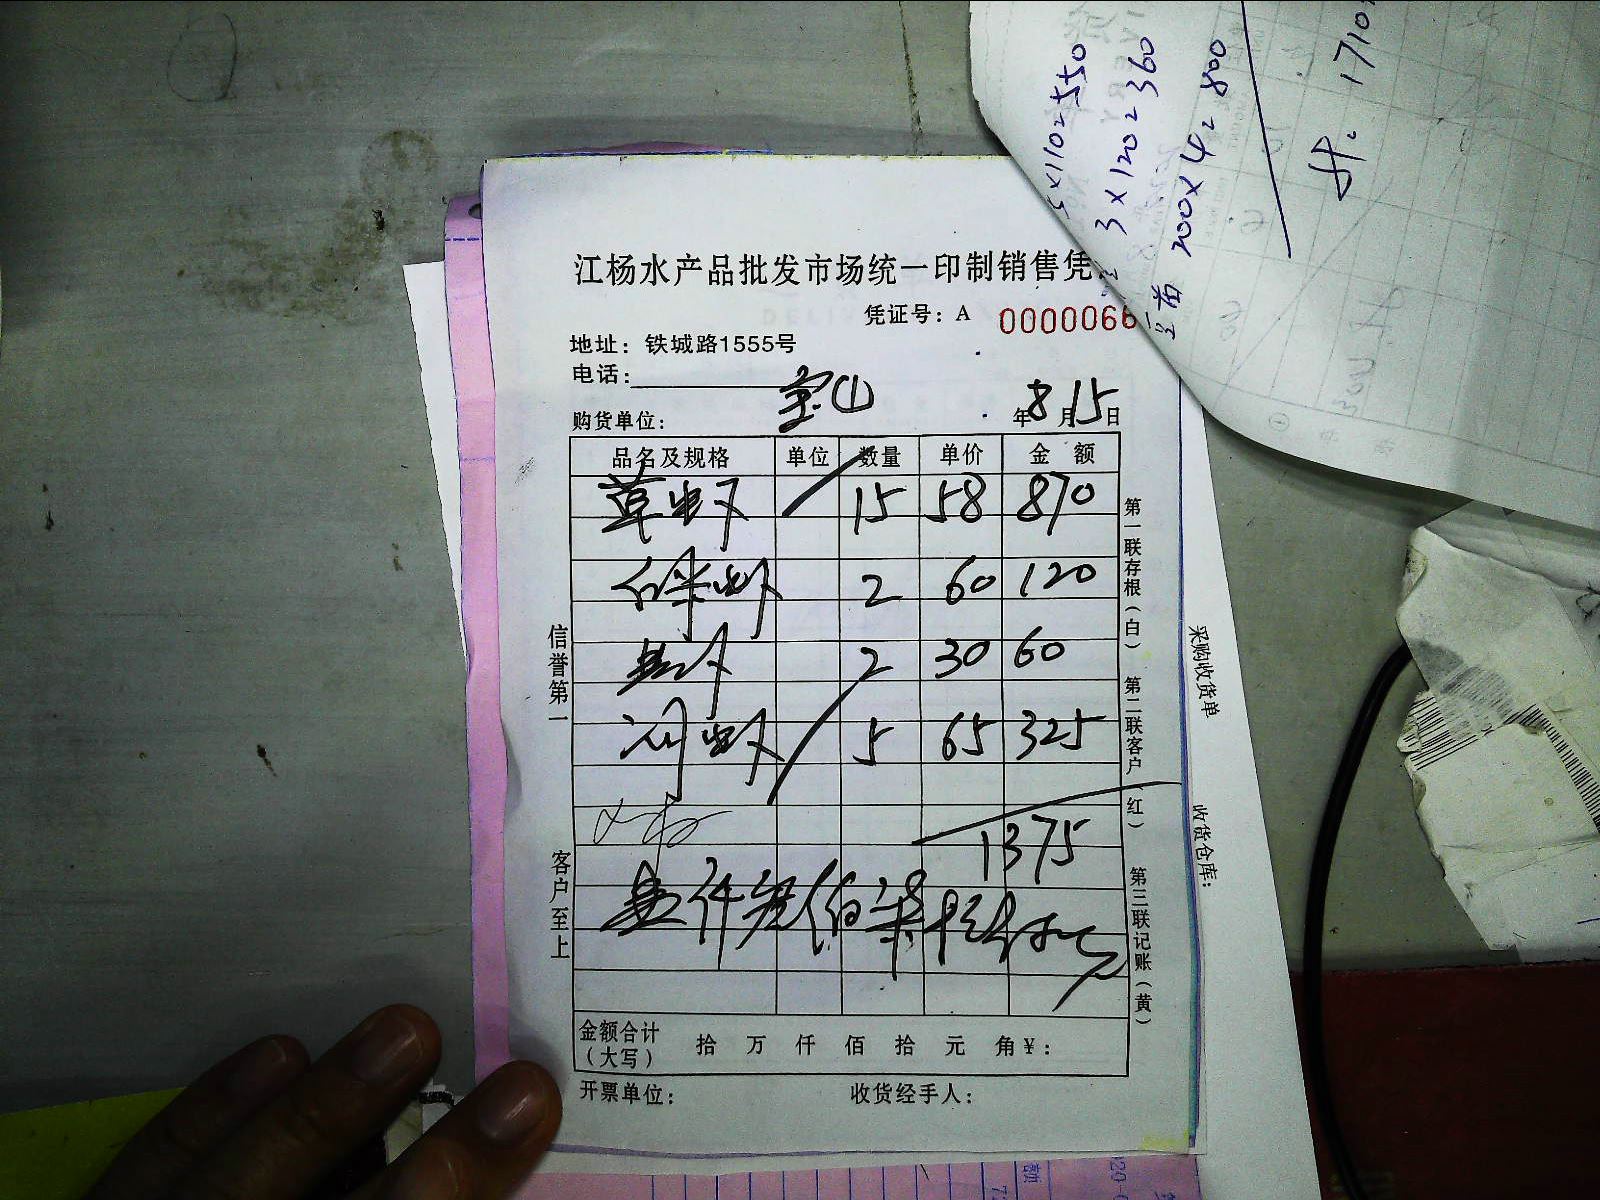 江杨水产品批发市场统一印制销售凭
凭证号：A 0000066
地址：铁城路1555号
电话：
购货单位：宝山 年8月15日
品名及规格 单位 数量 单价 金 额
草虾 15 58 870
白米虾 2 60 120
2 30 60
河虾 5 65 325
1375
壹仟叁佰柒拾伍元
金额合计（大写） 拾 万 仟 佰 拾 元 角￥：
开票单位： 收货经手人：
信誉第一
客户至上
第一联存根（白） 第二联客户（红） 第三联记账（黄）
采购收货单
收货仓库：
5×110=550
3×120=360
200×4=800
1710